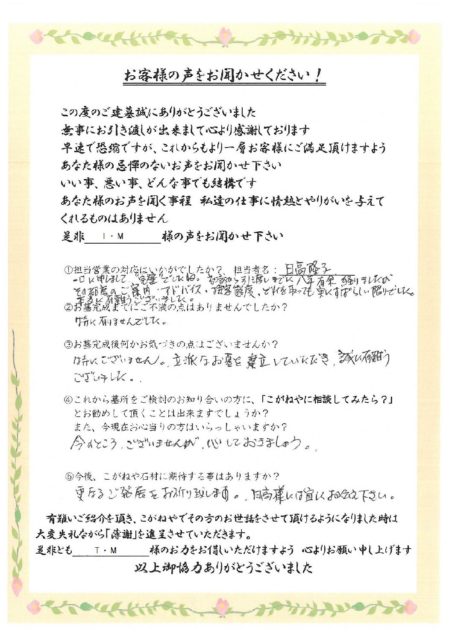 お客様の声をお聞かせください！
この度のご建墓誠にありがとうございました
無事にお引き渡しが出来まして心より感謝しております
早速で恐縮ですが、これからもより一層お客様にご満足頂けますよう
あなた様の忌憚のないお声をお聞かせ下さい
いい事、悪い事、どんな事でも結構です
あなた様のお声を聞く事程　私達の仕事に情熱とやりがいを与えて
くれるものはありません
是非　I・M　様の声をお聞かせ下さい
①担当営業の対応はいかがでしたか？　担当者名：日高
②お墓完成までにご不満の点はありませんでしたか？
特に有りませんでした。
③お墓完成後何かお気づきの点はございませんか？
特にございません。立派なお墓を建立していただき、誠に有難う
ございました。
④これから墓所をご検討のお知り合いの方に、「こがねやに相談してみたら？」
とお勧めして頂くことは出来ますでしょうか？
また、今現在お心当りの方はいらっしゃいますか？
今のところ、ございませんが、心しておきましょう。
⑤今後、こがねや石材に期待する事はありますか？
更なるご発展をお祈り致します。日高様には宜しくお伝え下さい。
有難いご紹介を頂き、こがねやでその方のお世話をさせて頂けるようになりました時は
大変失礼ながら「薄謝」を進呈させていただきます。
是非とも　T・M　様のお力をお借しいただけますよう　心よりお願い申し上げます
以上御協力ありがとうございました